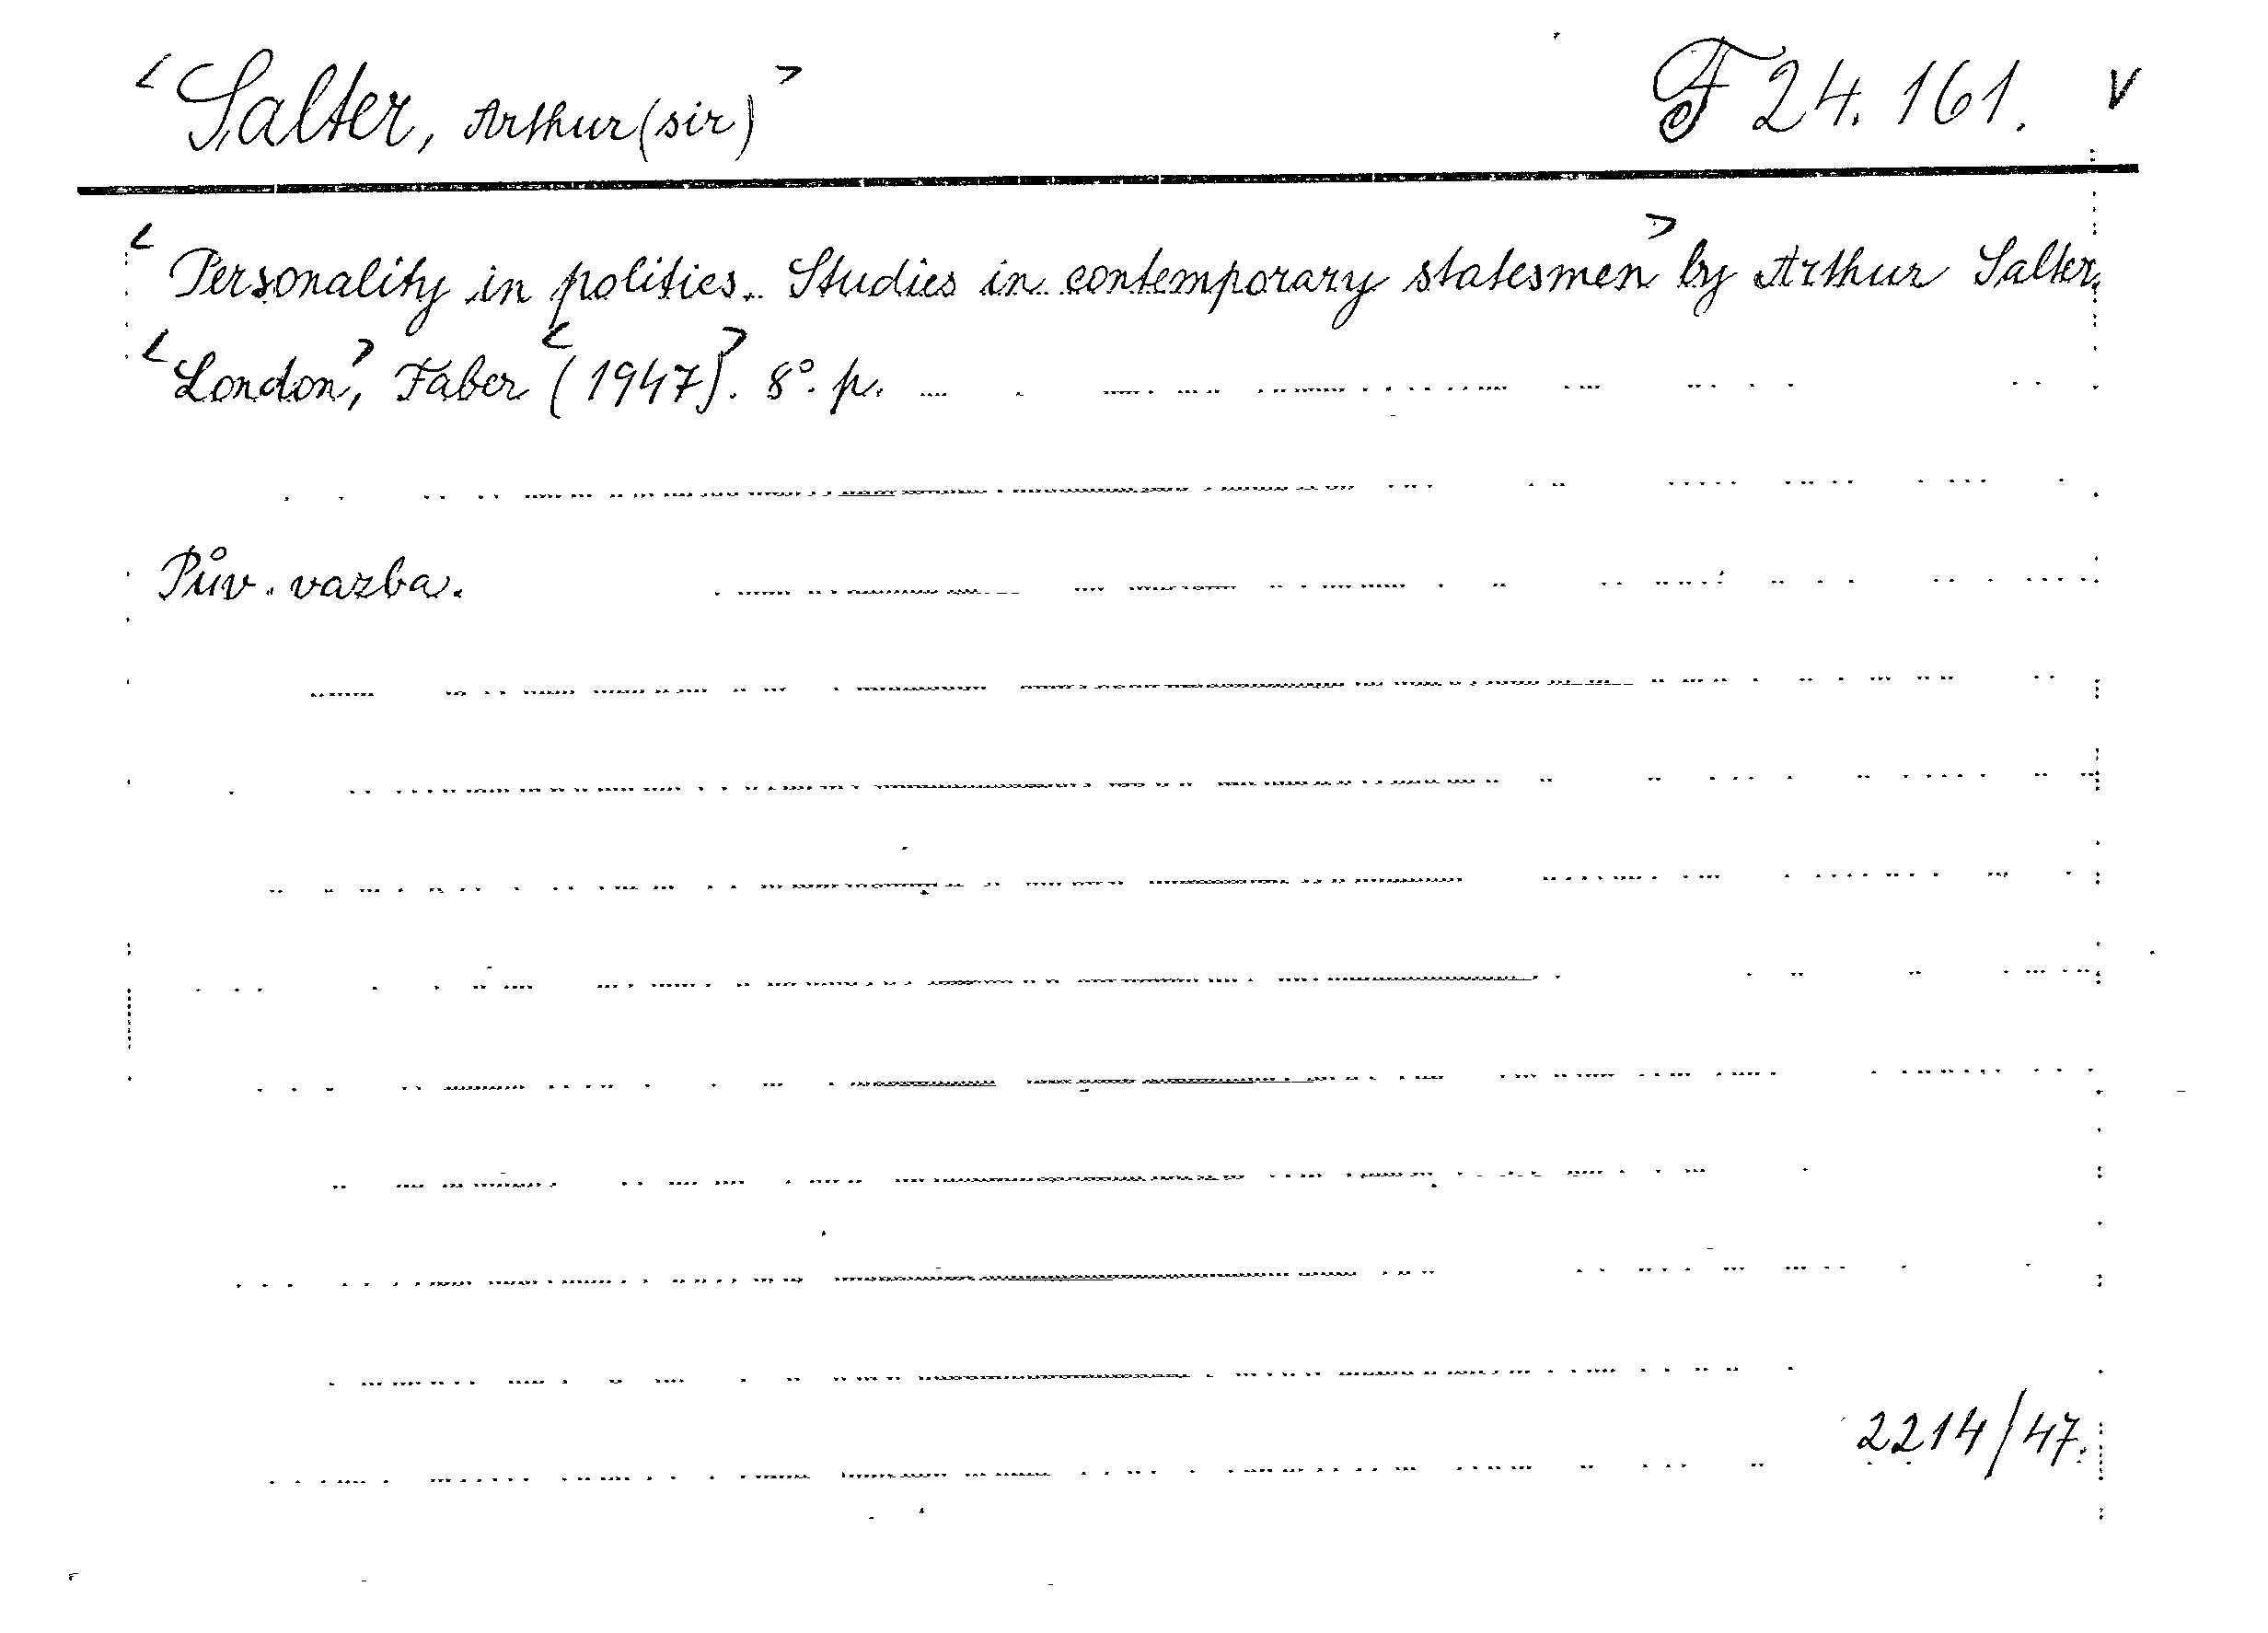 <Salter, Arthur (sir)> F 24.161. V
<Personality in politics. Studies in contemporary statesmen> by Arthur Salter.
<London>, Faber <(1947)>. 8°. p.
Pův. vazba.
2214/47.